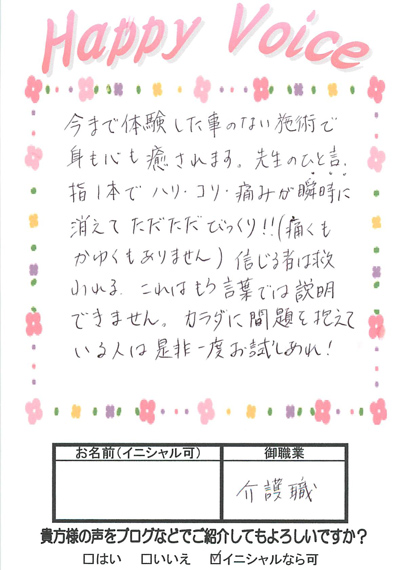 Happy Voice
今まで体験した事のない施術で
身も心も癒されます。先生のひと言、
指1本でハリ・コリ・痛みが瞬時に
消えてただただびっくり!!(痛くも
かゆくもありません)信じる者は救
われる、これはもう言葉では説明
できません。カラダに問題を抱えて
いる人は是非一度お試しあれ!
お名前(イニシャル可) 御職業
介護職
貴方様の声をブログなどでご紹介してもよろしいですか?
□はい □いいえ ☑イニシャルなら可